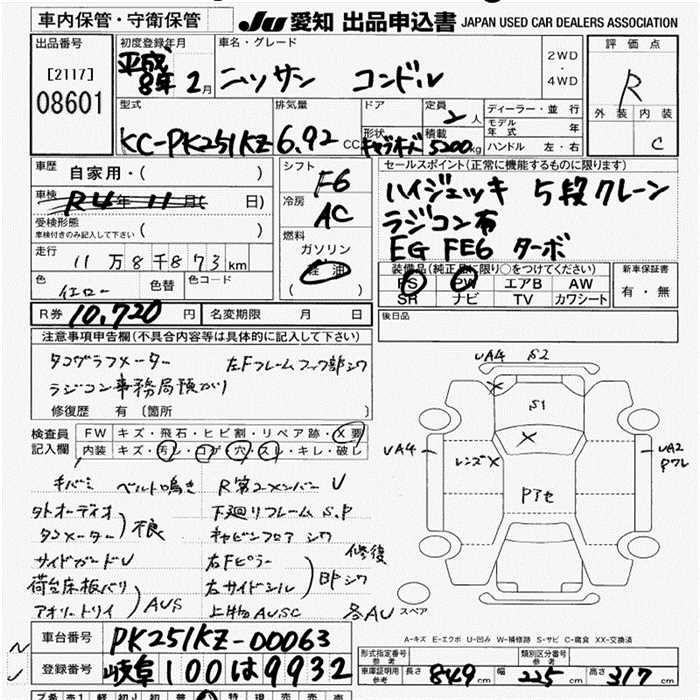 車内保管・守衛保管 JU 愛知 出品申込書 JAPAN USED CAR DEALERS ASSOCIATION
出品番号 初度登録年月 車名・グレード 2WD・4WD 評価点
[2117] 08601 平成8年2月 ニッサン コンドル R
外装 内装
C
型式 排気量 ドア 定員 2人 ディーラー・並行
モデル年式 年
KC-PK251KZ 6.92CC 形状 キャブオーバ 積載 5200kg ハンドル 左・右
車歴 自家用・( ) シフト F6 セールスポイント(正常に機能するものに限ります)
車検 R4年11月( 日) 冷房 AC ハイジャッキ 5段クレーン
受検形態 車検付きのみ記入して下さい ( ) 燃料 ラジコン有
走行 11万8千873km ガソリン EG FE6 ターボ
軽油
( )
装備品(純正品に限り○をつけてください) 新車保証書
色 イエロー 色替 色コード PS PW エアB AW 有・無
SR ナビ TV カワシート
R券 10,720円 名変期限 月 日 後日品
注意事項申告欄(不具合内容等は具体的に記入して下さい)
タコグラフメーター 左Fフレームフック部シワ
ラジコン事務局預かり
修復歴 有 [箇所 ]
検査員記入欄 FW キズ・飛石・ヒビ割・リペア跡・X要
内装 キズ・汚レ・コゲ・穴・スレ・キレ・破レ
UA4 S2
S1
UA4 レンズX UA2
Pアセ
ベルト鳴き R第2メンバーU
オーディオ 下廻りフレームS.P
タコメーター 不良 キャビンフロアシワ
サイドガードU 右Fピラー 修復
荷台床板バリ 右サイドシル BPシワ
アオリ AUS 上物AUSC 各AU
スペア
A-キズ E-エクボ U-凹み W-補修跡 S-サビ C-腐食 XX-交換済
車台番号 PK251KZ-00063
登録番号 岐阜100は9932
形式指定番号 参考 類別区分番号 参考
車庫証明用 参考 長さ 849cm 幅 225cm 高さ 317cm